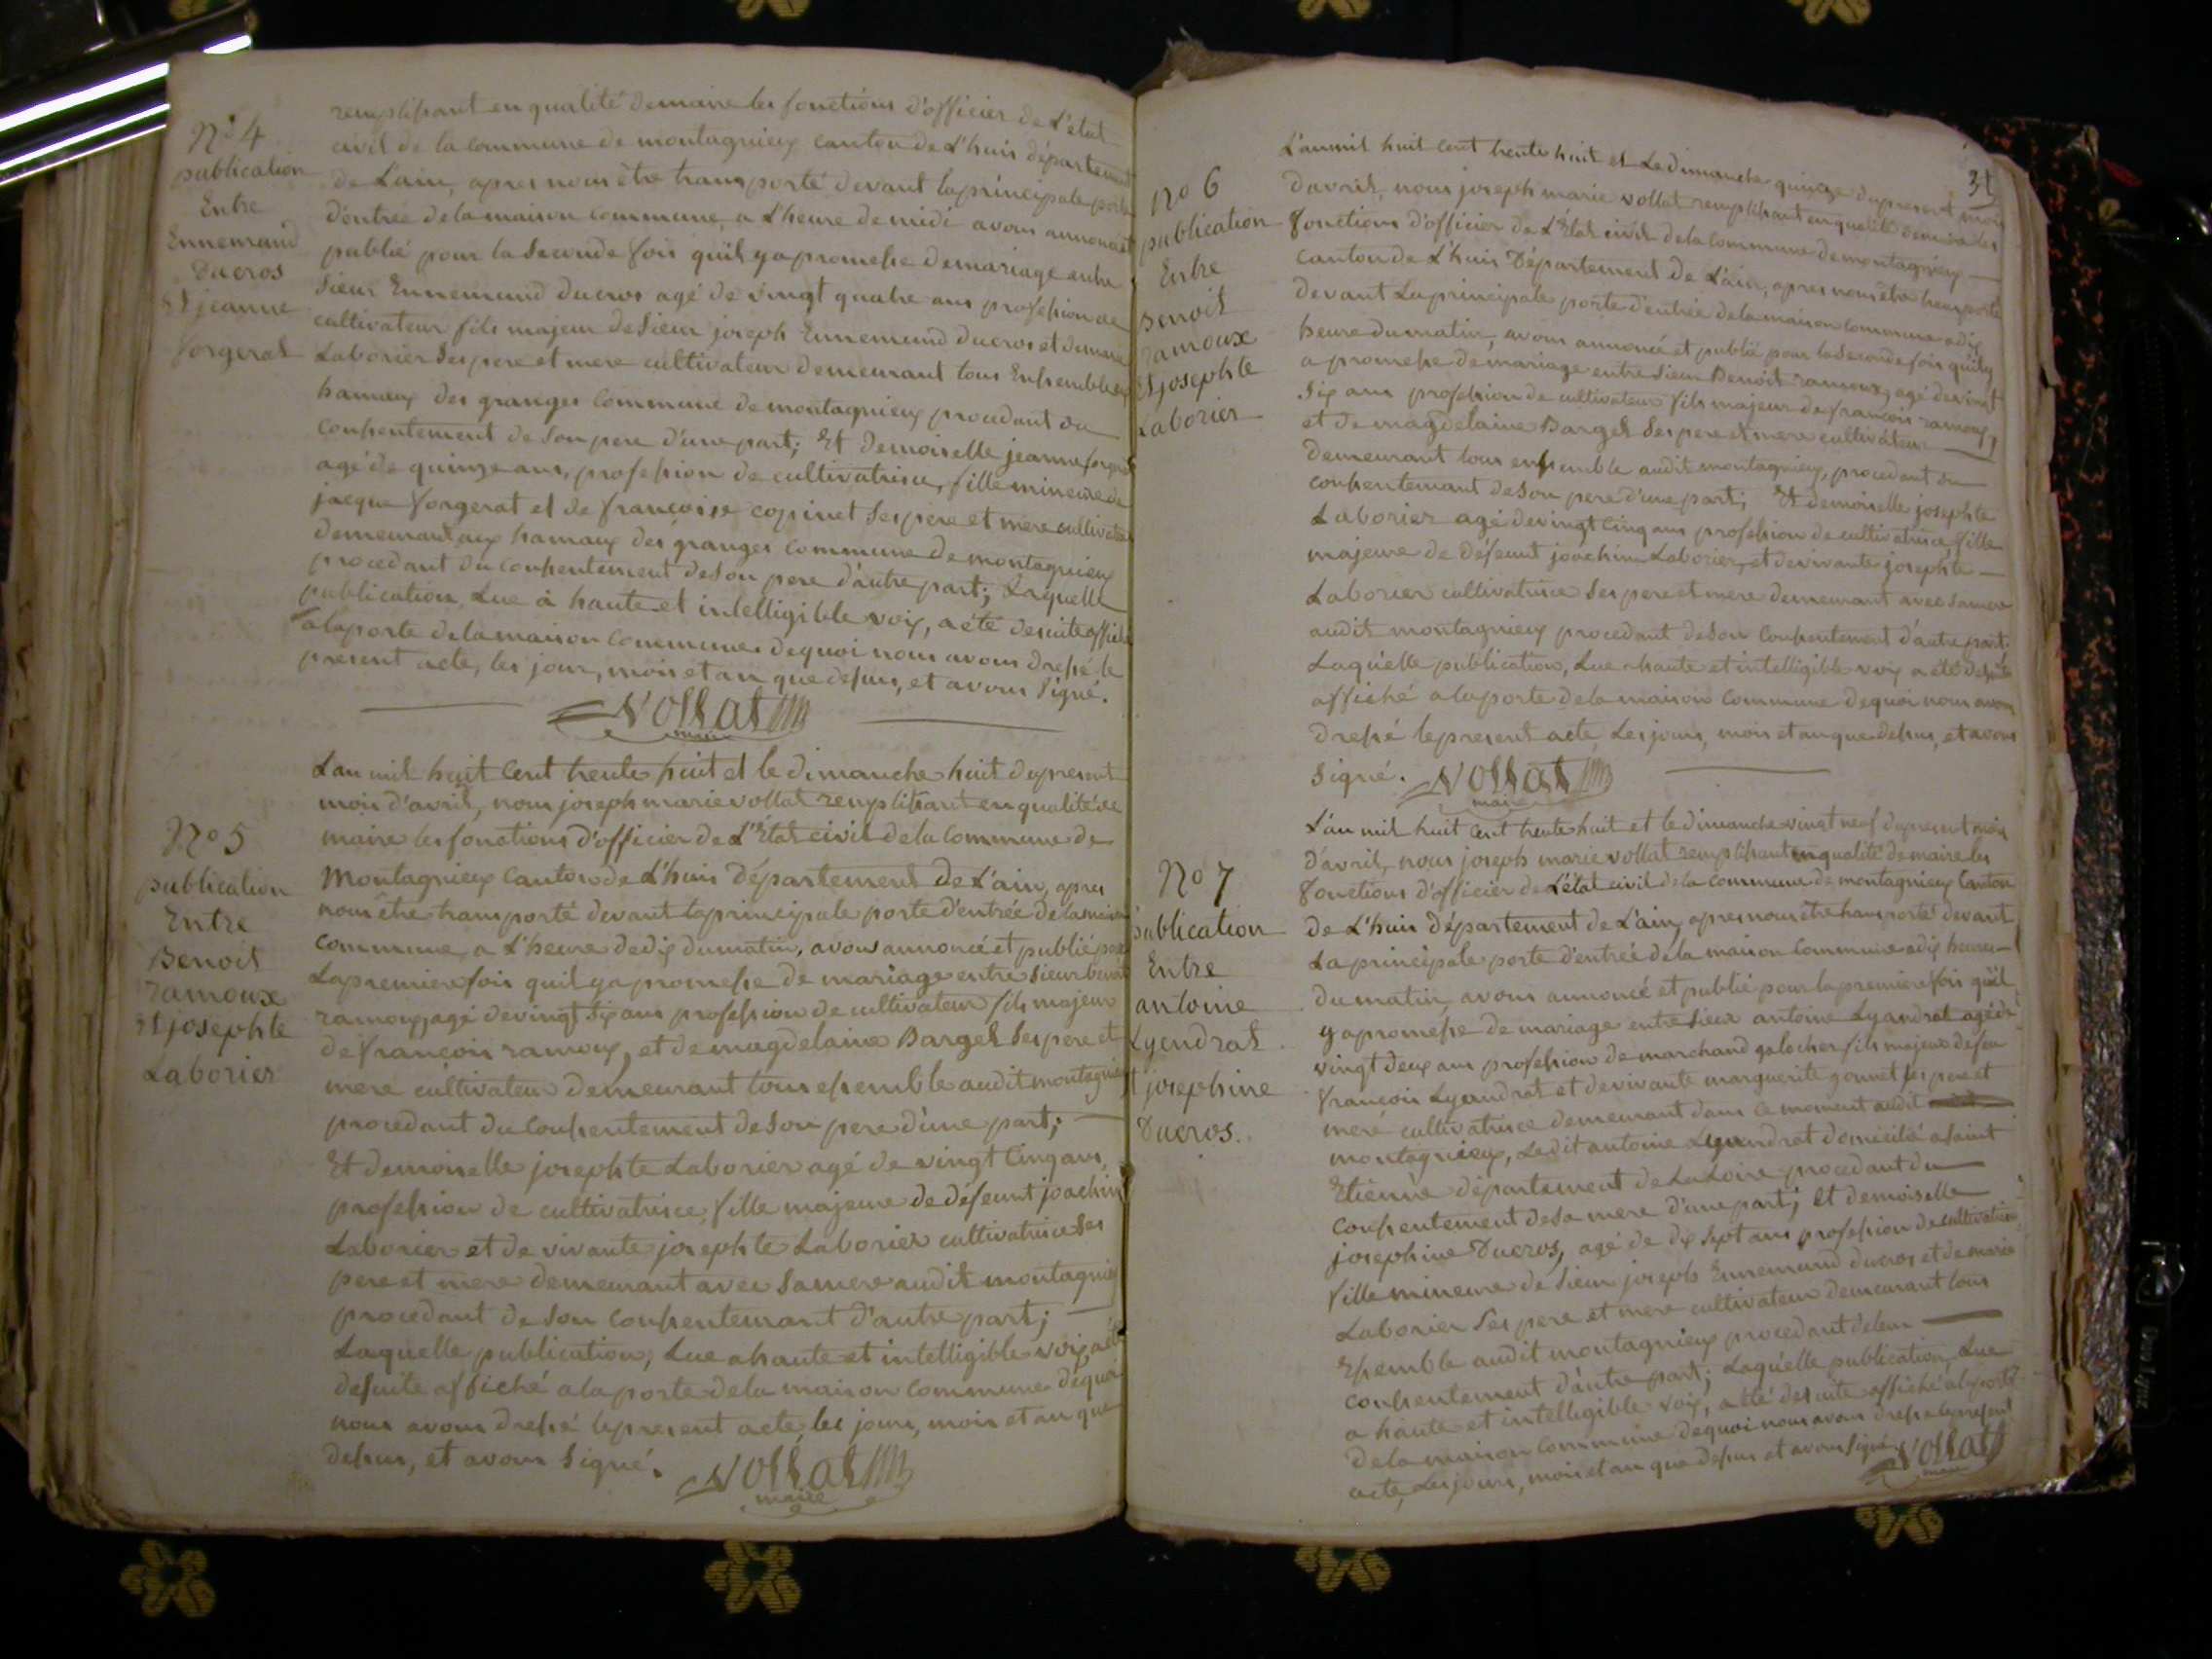 N° 4
publication
Entre
Ennemend
Ducros
Et jeanne
forgerat
remplissant en qualité de maire les fonctions d'officier de L'état
civil de la commune de montagnieux canton de L'huis département
de L'ain, apres nous être transporté devant la principale porte
d'entrée de la maison commune, a L'heure de midi avons annoncé et
publié pour la seconde fois qu'il y a promesse de mariage entre
Sieur Ennemend Ducros agé de vingt quatre ans profession de
cultivateur fils majeur de Sieur joseph Ennemend ducros et de marie
Laborier Ses pere et mere cultivateur demeurant tous Ensemble
hamaux des granges commune de montagnieux procedant du
consentement de son pere d'une part; Et demoiselle jeanne forgerat
agé de quinze ans, profession de cultivatrice, fille mineure de
jacque forgerat et de françoise copinet ses pere et mere cultivateur
demeurant aux hamaux des granges commune de montagnieux
procedant du consentement de son pere d'autre part; Laquelle
publication Lue à haute et intelligible voix, a été de suite affiché
a la porte de la maison commune de quoi nous avons dressé le
present acte, les jour, mois et an que dessus, et avons signé.
Vollat
maire
N° 5
publication
Entre
Benoit
ramoux
Et josephte
Laborier
L'an mil huit cent trente huit et le dimanche huit du present
mois d'avril, nous joseph marie vollat remplissant en qualité de
maire les fonctions d'officier de L'Etat civil de la commune de
Montagnieux canton de L'huis Département de L'ain, apres
nous être transporté devant la principale porte d'entrée de la maison
commune, a L'heure de dix du matin, avons annoncé et publié pour
La premiere fois quil y a promesse de mariage entre sieur benoit
ramoux, agé de vingt six ans profession de cultivateur fils majeur
de françois ramoux, et de magdelaine Barget Ses pere et
mere cultivateur demeurant tous esemble audit montagnieux
procedant du consentement de son pere d'une part;
Et demoiselle josephte Laborier agé de vingt cinq ans,
profession de cultivatrice, fille majeure de défeunt joachim
Laborier et de vivante josephte Laborier cultivatrice ses
pere et mere demeurant avec sa mere audit montagnieux
procedant de son consentement d'autre part;
Laquelle publication, Lue a haute et intelligible voix, a été
desuite affiché a la porte de la maison commune dequoi
nous avons dressé le present acte, les jours, mois et an que
dessus, et avons Signé.
Vollat
maire
31
N° 6
publication
Entre
Benoit
ramoux
Et josephte
Laborier
L'an mil huit cent trente huit et Le dimanche quinze du present mois
d'avril, nous joseph marie vollat remplissant en qualité de maire les
fonctions d'officier de L'Etat civil de la commune de montagnieux
canton de L'huis Département de L'ain, apres nous être transporté
devant La principale porte d'entrée de la maison commune a dix
heure du matin, avons annoncé et publié pour la seconde fois quil y
a promesse de mariage entre Sieur Benoit ramoux, agé de vingt
six ans profession de cultivateur fils majeur de françois ramoux,
et de magdelaine Barget Ses pere et mere cultivateur
demeurant tous ensemble audit montagnieux, procedant du
consentemant de son pere d'une part; Et demoiselle josephte
Laborier agé de vingt cinq ans profession de cultivatrice fille
majeure de défeunt joachim Laborier, et de vivante josephte
Laborier cultivatrice ses pere et mere demeurant avec sa mere
audit montagnieux procedant de son consentement d'autre part.
Laquelle publication, Lue a haute et intelligible voix a été desuite
affiché a la porte de la maison commune de quoi nous avons
dressé le present acte, Les jours, mois et an que dessus, et avons
Signé. Vollat
maire
N° 7
publication
Entre
antoine
Lyendrat
Et josephine
Ducros.
L'an mil huit cent trente huit et le dimanche vingt neuf du present mois
d'avril, nous joseph marie vollat remplissant en qualité de maire les
fonctions d'officier de L'état civil de la commune de montagnieux canton
de L'huis Département de L'ain, apres nous être transporté devant
La principale porte d'entrée de la maison commune a dix heures
du matin, avons annoncé et publié pour la premiere fois quil
y a promesse de mariage entre Sieur antoine Lyandrat agé de
vingt deux ans profession de marchand galocher fils majeur de feu
françois Lyandrat et de vivante marguerite gonnet ses pere et
mere cultivatrice demeurant dans ce moment audit
montagnieux, Le dit antoine Lyandrat domicilié a saint
Etienne département de La Loire procedant du
consentement de sa mere d'une part; Et demoiselle
josephine Ducros, agé de dix sept ans profession de cultivatrice
fille mineure de Sieur joseph Ennemend ducros et de marie
Laborier Ses pere et mere cultivateur demeurant tous
Esemble audit montagnieux procedant de leur
consentement d'autre part; Laquelle publication, Lue
a haute et intelligible voix, a été desuite affiché a la porte
de la maison commune de quoi nous avons dressé le present
acte, Les jours, mois et an que dessus et avons signé. Vollat
maire